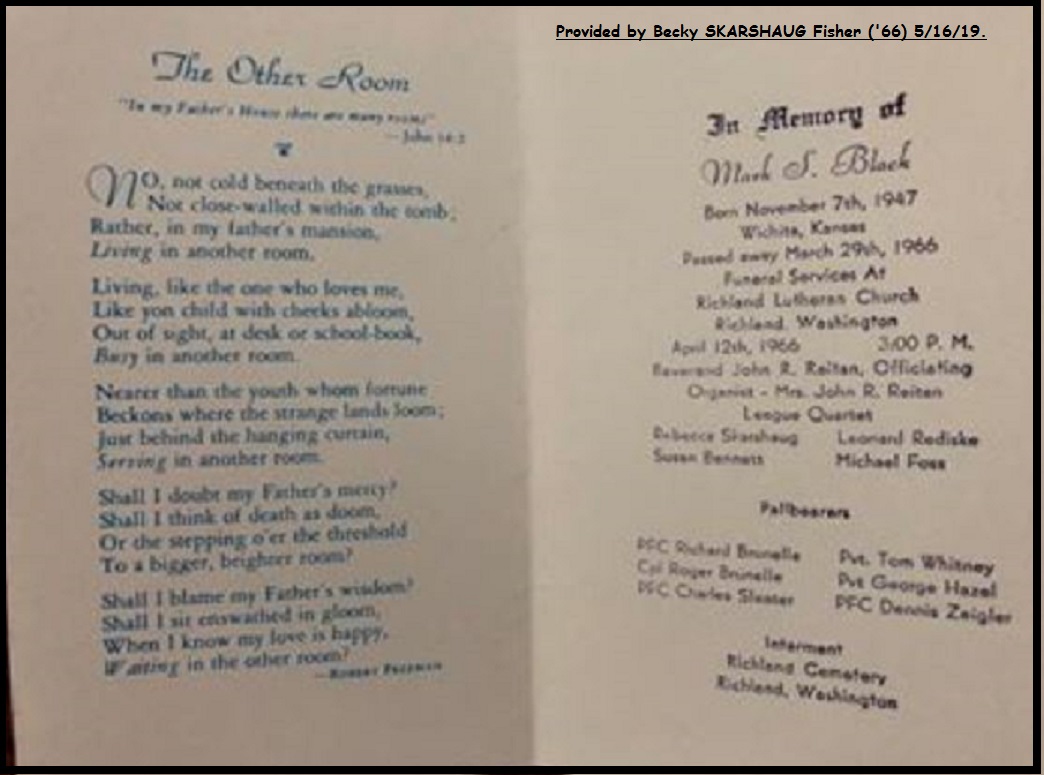 Provided by Becky SKARSHAUG Fisher ('66) 5/16/19.
The Other Room
"In my Father's House there are many rooms"
—John 14:2
NO, not cold beneath the grasses,
Not close-walled within the tomb;
Rather, in my father's mansion,
Living in another room.
Living, like the one who loves me,
Like yon child with cheeks abloom,
Out of sight, at desk or school-book,
Busy in another room.
Nearer than the youth whom fortune
Beckons where the strange lands loom;
Just behind the hanging curtain,
Serving in another room.
Shall I doubt my Father's mercy?
Shall I think of death as doom,
Or the stepping o'er the threshold
To a bigger, brighter room?
Shall I blame my Father's wisdom?
Shall I sit enswathed in gloom,
When I know my love is happy,
Waiting in the other room?
—ROBERT FREEMAN
In Memory of
Mark S. Black
Born November 7th, 1947
Wichita, Kansas
Passed away March 29th, 1966
Funeral Services At
Richland Lutheran Church
Richland, Washington
April 12th, 1966 3:00 P. M.
Reverend John R. Reiten, Officiating
Organist - Mrs. John R. Reiten
League Quartet
Rebecca Skarshaug Leonard Rediske
Susan Bennett Michael Foss
Pallbearers
PFC Richard Brunelle Pvt. Tom Whitney
Cpl Roger Brunelle Pvt George Hazel
PFC Charles Sleater PFC Dennis Zeigler
Interment
Richland Cemetery
Richland, Washington